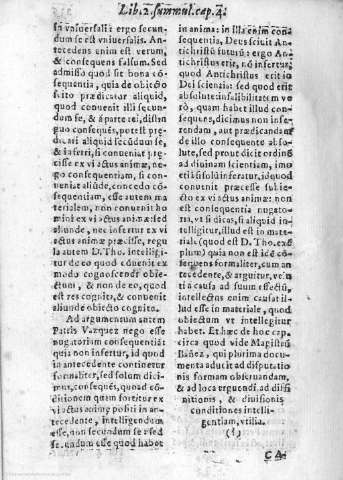 Lib. 2. summul. cap. 4.
in vniuersali: ergo secun-
dum se est vniuersalis. An-
tecedens enim est verum,
& consequens falsum. Sed
admisso quod sit bona có-
sequentia, quia de obiecto
scito prædicatur aliquid,
quod conuenit illi secun-
dum se, & à parte rei, distin-
guo consequẽs, potest præ-
dicari aliquid secũdum se,
& inferri, si conueniat præ-
cisse ex vi actus animæ, ne-
go consequentiam, si conue-
niat aliũde, concedo cõ-
sequentiam, esse autem ma
terialem, non conuenit ho
mini ex vi actus animæ sed
aliunde, nec infertur ex vi
actus animæ præcisse, regu
la autem D. Tho. intelligi-
tur de eo quod cõuenit ex
modo cognoscendi obie-
ctum, & non de eo, quod
est res cognita, & conuenit
aliunde obiecto cognito.
Ad argumentum autem
Patris Vazquez nego esse
nugatoriam consequentiã:
quia non infertur, id quod
in antecedente continetur
formaliter, sed solum dici-
mus, consequẽs, quoad cõ-
ditionem quam sortitur ex
vi actus animę positi in an-
tecedente, intelligendum
esse, non secundum se, sed
secundum esse quod habet
in anima: in illa enim con-
sequentia, Deus sciuit An-
tichristũ futurũ: ergo Anti-
christus erit, nõ infertur,
quod Antichristus erit in
Dei sciencia: sed quod erit
absolute: infalibilitatem ve
rò, quam habet illud con-
sequens, dicimus non infe-
rendam, aut prædicandam
de illo consequente abso-
lute, sed prout dicit ordinẽ
ad diuinam scientiam, imo
etiã si solũ inferatur, id quod
conuenit præcisse subie-
cto ex vi actus animæ: non
est consequentia nugato-
ria, vt si dicas, si aliquid in-
telligitur, illud est in mate-
riale (quod est D. Tho. exẽ
plum) quia non est idẽ cõ-
sequens formaliter, cum an
tecedente, & arguitur, ve-
tia causa ad suum effectũ,
intellectus enim causat il-
lud esse in materiale, quod
obiectum vt intellegitur
habet. Et hæc de hoc cap.
circa quod vide Magistrũ
Bañez, qui plurima docu-
menta aducit ad disputatio-
nis formam obseruandam,
& ad loca arguendi, ad diffi
nitionis, & diuisionis
conditiones intelli-
gentiam, vtilia.
(§)
CA-